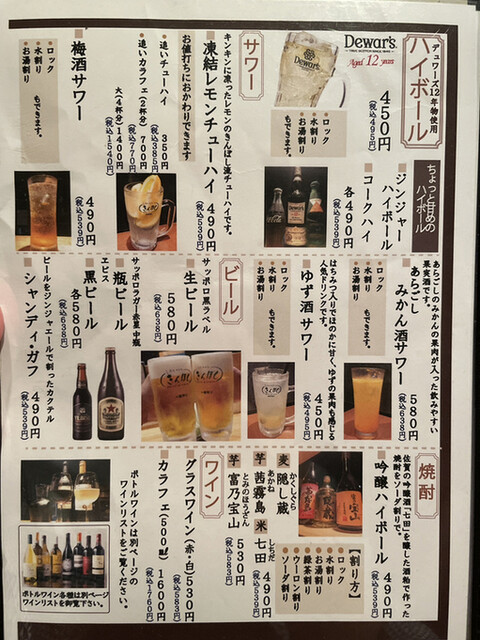 デュワーズ12年物使用
ハイボール
Dewar's
Aged 12 years
450円
(税込495円)
●ロック
●水割り
●お湯割り
もできます。
ちょっと甘めの
ハイボール
■ジンジャー
ハイボール
■コークハイ
各490円
(税込539円)
サワー
キンキンに凍ったレモンのきんぼし流チューハイです。
■凍結レモンチューハイ 490円
(税込539円)
お値打ちにおかわりできます
●追いチューハイ 350円
(税込385円)
●追いカラフェ(2杯分) 700円
(税込770円)
大(4杯分) 1400円
(税込1540円)
■梅酒サワー
490円
(税込539円)
●ロック
●水割り
●お湯割り
もできます。
あらごしのみかんの果肉が入った飲みやすい
果実酒です。
■あらごし
みかん酒サワー
580円
(税込638円)
●ロック
●水割り
●お湯割り
もできます。
はちみつ入りでほのかに甘く、ゆずの果肉も感じる
人気ドリンクです。
■ゆず酒サワー
450円
(税込495円)
●ロック
●水割り
●お湯割り
もできます。
ビール
サッポロ黒ラベル
■生ビール
580円
(税込638円)
サッポロラガー赤星中瓶
■瓶ビール
ヱビス
■黒ビール
各580円
(税込638円)
ビールをジンジャエールで割ったカクテル
■シャンディ・ガフ
490円
(税込539円)
きんぼし
焼酎
佐賀の吟醸酒「七田」を醸した酒粕で作った
焼酎をソーダ割りで。
■吟醸ハイボール
490円
(税込539円)
【割り方】
●ロック
●水割り
●お湯割り
●緑茶割り
●ウーロン割り
●ソーダ割り
麦 隠し蔵
かくしぐら
芋 茜霧島
あかね
米 七田
しちだ
490円
(税込539円)
芋 富乃宝山
とみのほうざん
530円
(税込583円)
ワイン
■グラスワイン(赤・白) 530円
(税込583円)
■カラフェ(500㎖) 1600円
(税込1760円)
ボトルワインは別ページの
ワインリストをご覧ください。
ボトルワイン各種は別ページ
ワインリストを御覧下さい。